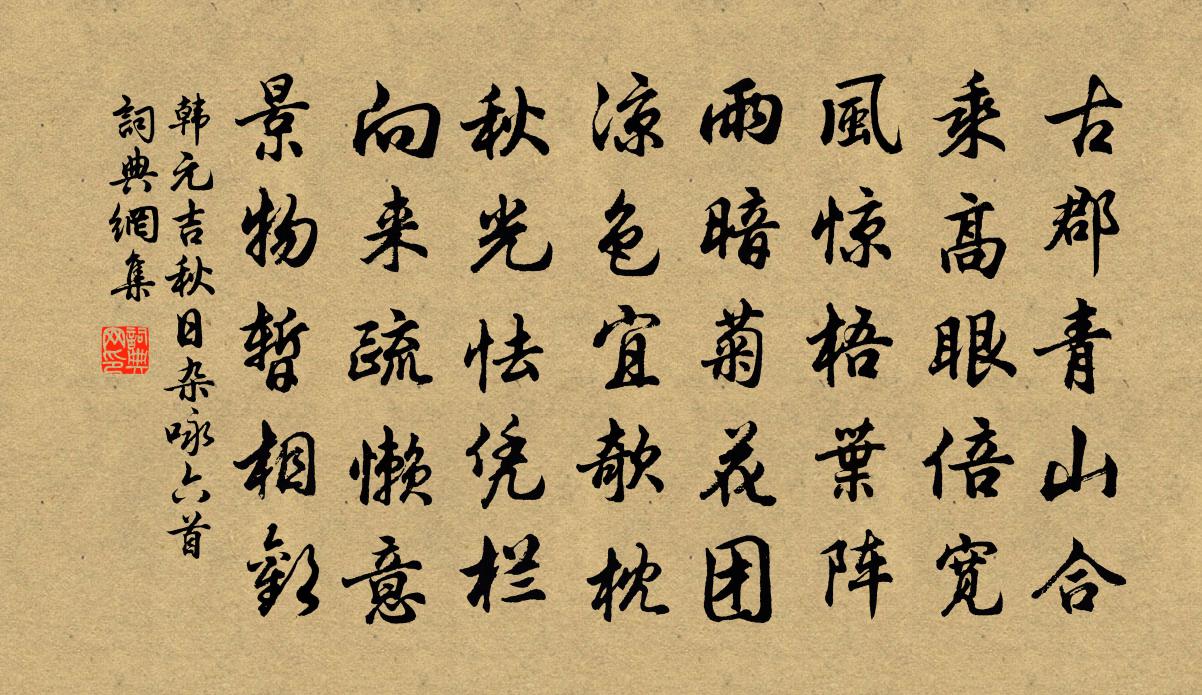 古郡青山合
乘高眼倍寬
風惊梧葉阵
雨暗菊花团
涼色宜欹枕
秋光怯凭栏
向来疏懒意
景物暫相歡
韩元吉秋日杂咏六首
詞典網集
詞典网印